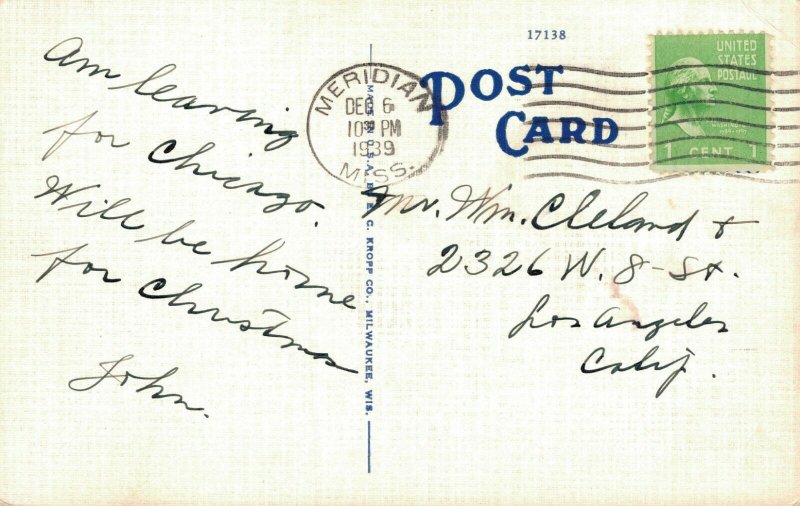 17138
POST
CARD
UNITED
STATES
POSTAGE
1 CENT 1
MERIDIAN
DEC 6
PM
1939
MISS.
Am leaving
for Chicago.
Will be home
for Christmas
John.
MADE IN U.S.A. BY E. C. KROPP CO., MILWAUKEE, WIS.
Mr. Wm. Cleland +
2326 W. 8-St.
Los Angeles
Calif.